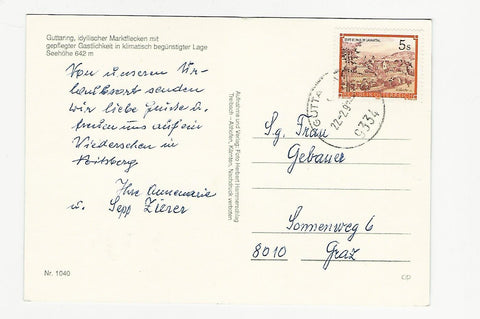 Guttaring, idyllischer Marktflecken mit
gepflegter Gastlichkeit in klimatisch begünstigter Lage
Seehöhe 642 m
Von unserem Ur-
laubsort senden
wir liebe Grüße u.
freuen uns auf ein
Wiedersehen in
Ihre Annemarie
u. Sepp Zierer
Nr. 1040
Aufnahme und Verlag: Foto Herbert
Treibach - Althofen, Kärnten, Nachdruck verboten
5s
GUTTA
22.-2.9
9334
Sg. Frau
Gebauer
Sonnenweg 6
8010 Graz